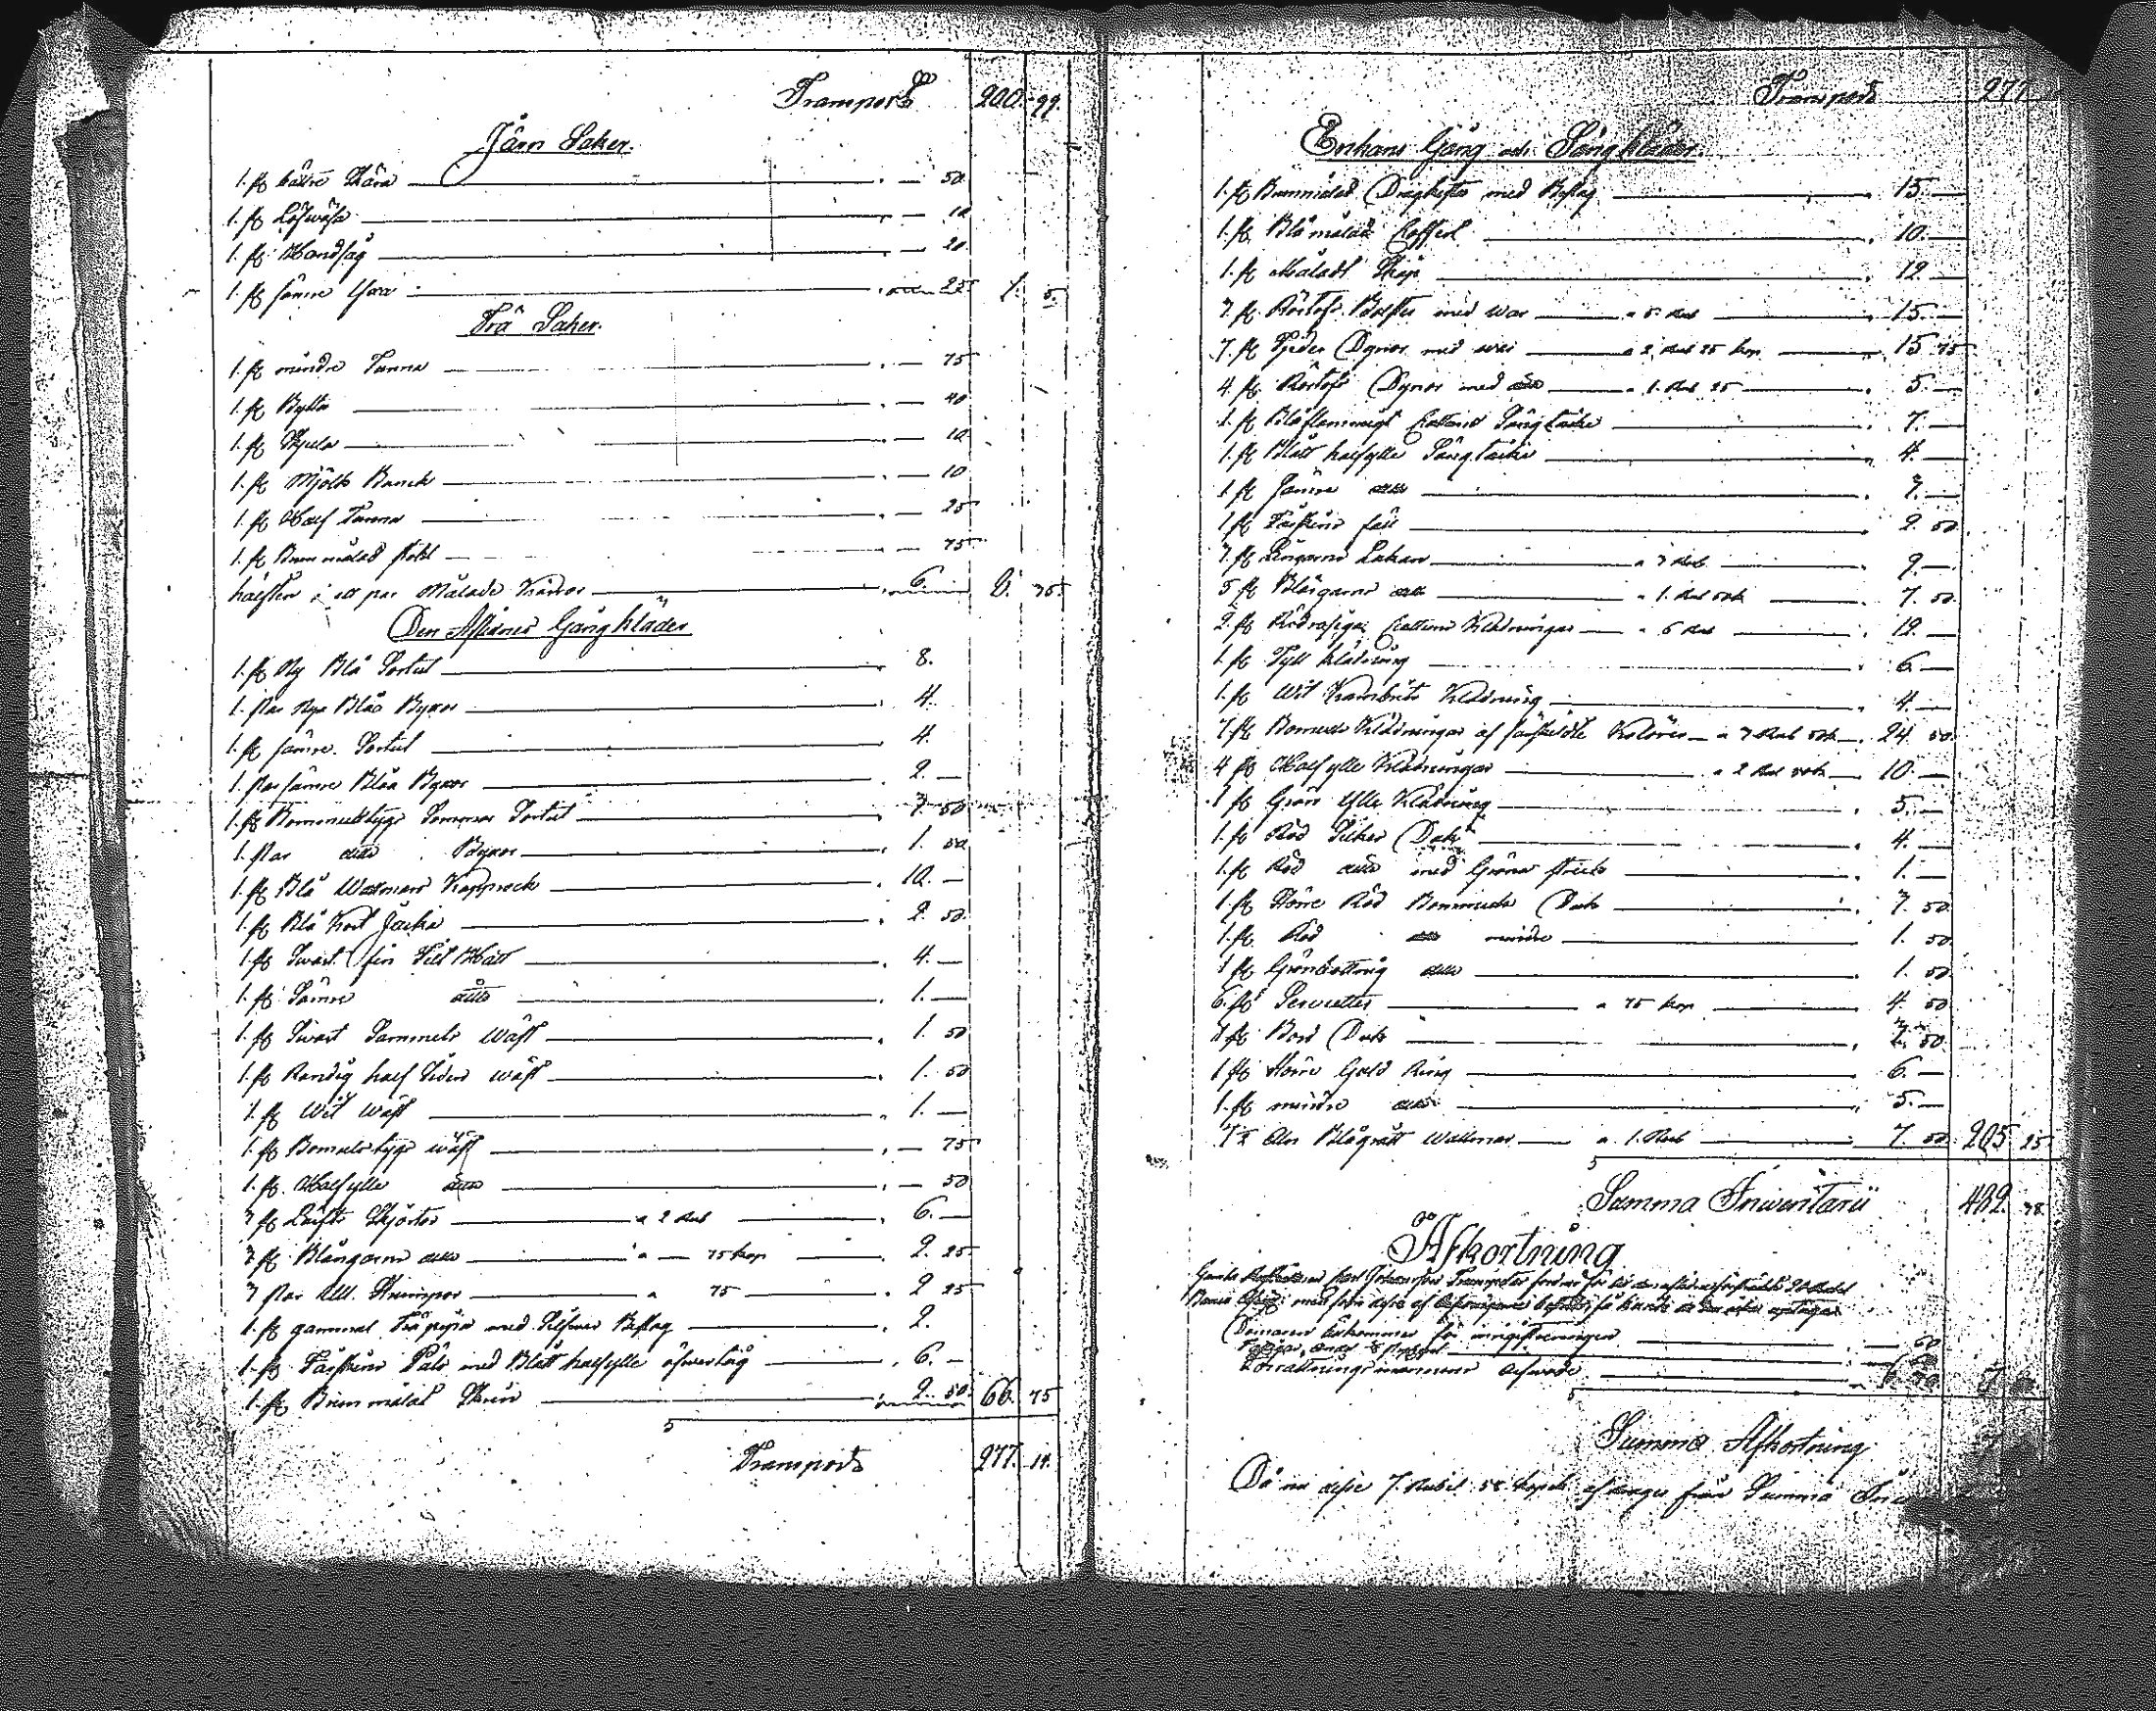 Transport 200. 99.
Järn Saker.
1. st bättre Skära . — 50
1. st Löfwässa . — 10
1. st Handsåg . — 20
1. st sämre Yxa 25 1. 5.
Trä Saker.
1. st mindre Tunna . — 75
1. st Bytta . — 40
1. st Skjula . — 10
1. st Mjölk Bunck . — 10
1. st Half Tunna . — 25
1. st Brun målad stohl . — 75
hälften i ett par Målade Kärror 6. 8. 35
Den Aflidnes Gångkläder
1. st Ny Blå Sortut 8.
1. Par Nya Blåa Byxor 4.
1. st sämre Sortut 4.
1. Par sämre Blåa Byxor 2. —
1. st Bommulstygs Sommar Sortut 3. 50
1. Par dito Byxor 1. 50
1. st Blå Wallmars Kapprock 10. —
1. st Blå Kort Jacka 2. 50
1. st Svart fin Filt Hatt 4. —
1. st Sämre dito 1. —
1. st Svart Sammets Wäst 1. 50
1. st Randig half Siden wäst 1. 50
1. st Wit Wäst 1. —
1. st Bomulstygs wäst . — 75
1. st Halfylle dito . — 50
3 st Lärfts Skjortor a 2 Rub 6. —
3 st Blångarns dito a — 75 kop 2. 25
3 Par Ull. Strumpor a 75 2 25
1. st gammal Träpipa med Silfwer Beslag 2.
1. st Fårskins Päls med Blått halfylle öfwertåg 6. —
1. st Brun målat Skrin 2. 50 66. 75
Transport 277. 14.
Transport 277
Enkans Gång och Sängkläder.
1. st Brunmålad Dragkista med Beslag 15. —
1. st Blå målad Koffert 10. —
1. st Måladt Skåp 12. —
3. st Bolster med war a 5 Rub 15. —
7. st Fjeder Dynor med war a 2 Rub 25 kop 15 75
4. st Dynor med dito a 1. Rub 25 5. —
1. st Blåflammigt Kattuns Sängtäcke 7. —
1. st Blått halfylle Sängtäcke 4. —
1. st Sämre dito 3. —
1. st Fårskins fäll 2 50
3. st Lingarns Lakan a 3 Rub 9. —
5 st Blångarns dito a 1. Rub 50k 7. 50
2. st Kattuns Klädningar a 6 Rub 12. —
1. st Tyll klädning 6. —
1. st Wit Kambriks Klädning 4. —
7. st Bomuls Klädningar af särskildte Kolörer a 3 Rub 50k 24. 50
4 st Halfylle Klädningar a 2 Rub 50k 10. —
1 st Grön Ylle Klädning 5. —
1. st Röd Silkes Duk 4. —
1. st Röd dito med Gröna 1. —
1. st Större Röd Bommuls Duk 3. 50
1. st Röd dito mindre 1. 50
1 st Grönbottnig dito 1. 50
6. st Servietter a 75 kop 4 50
1 st Bord Duk 50
1 st Större Guld Ring 6. —
1. st mindre dito 5. —
7½ Aln Blågrått wallmar a 1. Rub 7. 50 205 25
Summa Inwentarii 482. 38.
Afkortning
Domaren tillkommer för 50
Förrättningsmannen
Summa Afkortning
Då nu desse 7. Rubel 58 kopek afdrages från Summa